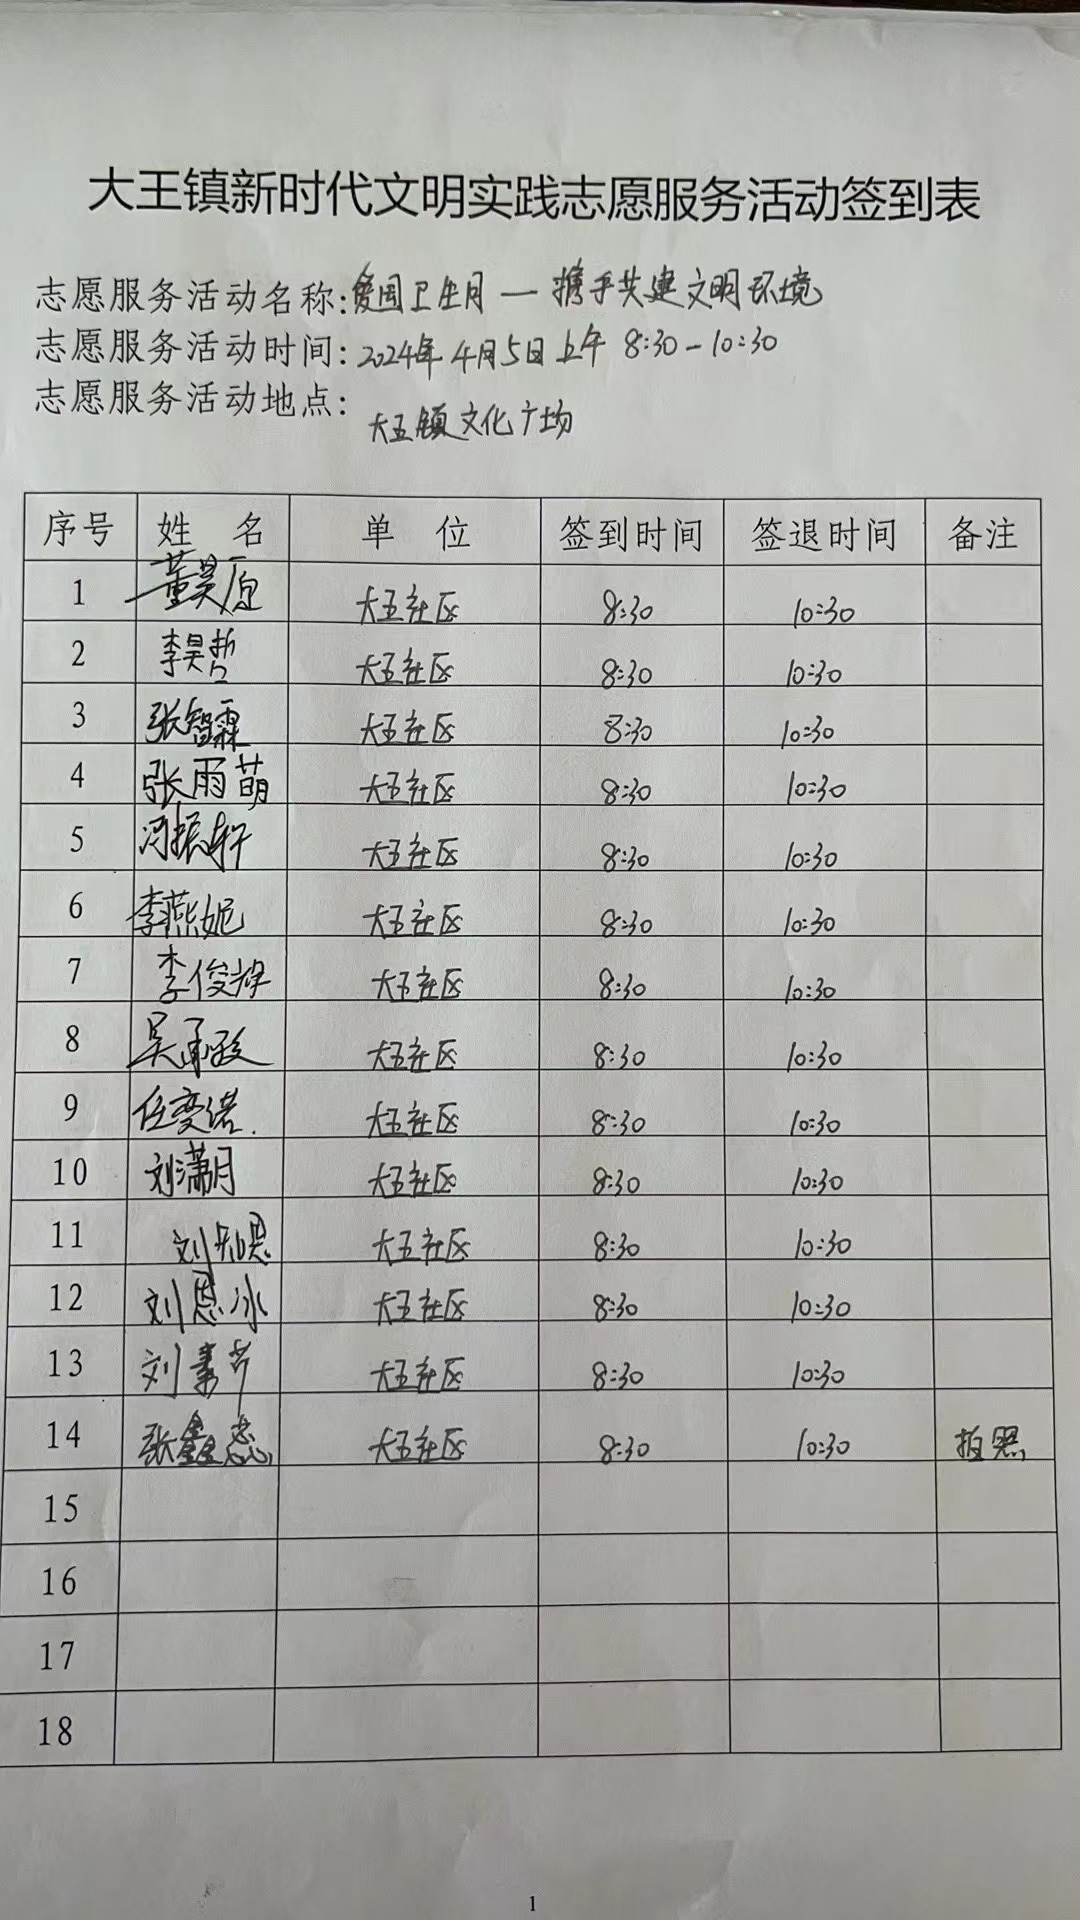 大王镇新时代文明实践志愿服务活动签到表
志愿服务活动名称:爱国卫生月—携手共建文明环境
志愿服务活动时间:2024年4月5日上午 8:30-10:30
志愿服务活动地点:大王镇文化广场
序号 姓 名 单 位 签到时间 签退时间 备注
1 董昊原 大王社区 8:30 10:30
2 李昊哲 大王社区 8:30 10:30
3 张智霖 大王社区 8:30 10:30
4 张雨萌 大王社区 8:30 10:30
5 冯振轩 大王社区 8:30 10:30
6 李燕妮 大王社区 8:30 10:30
7 李俊烨 大王社区 8:30 10:30
8 吴承政 大王社区 8:30 10:30
9 任变诺 大王社区 8:30 10:30
10 刘潇月 大王社区 8:30 10:30
11 刘知恩 大王社区 8:30 10:30
12 刘恩冰 大王社区 8:30 10:30
13 刘素芹 大王社区 8:30 10:30
14 张鑫蕊 大王社区 8:30 10:30 拍照
15
16
17
18
1